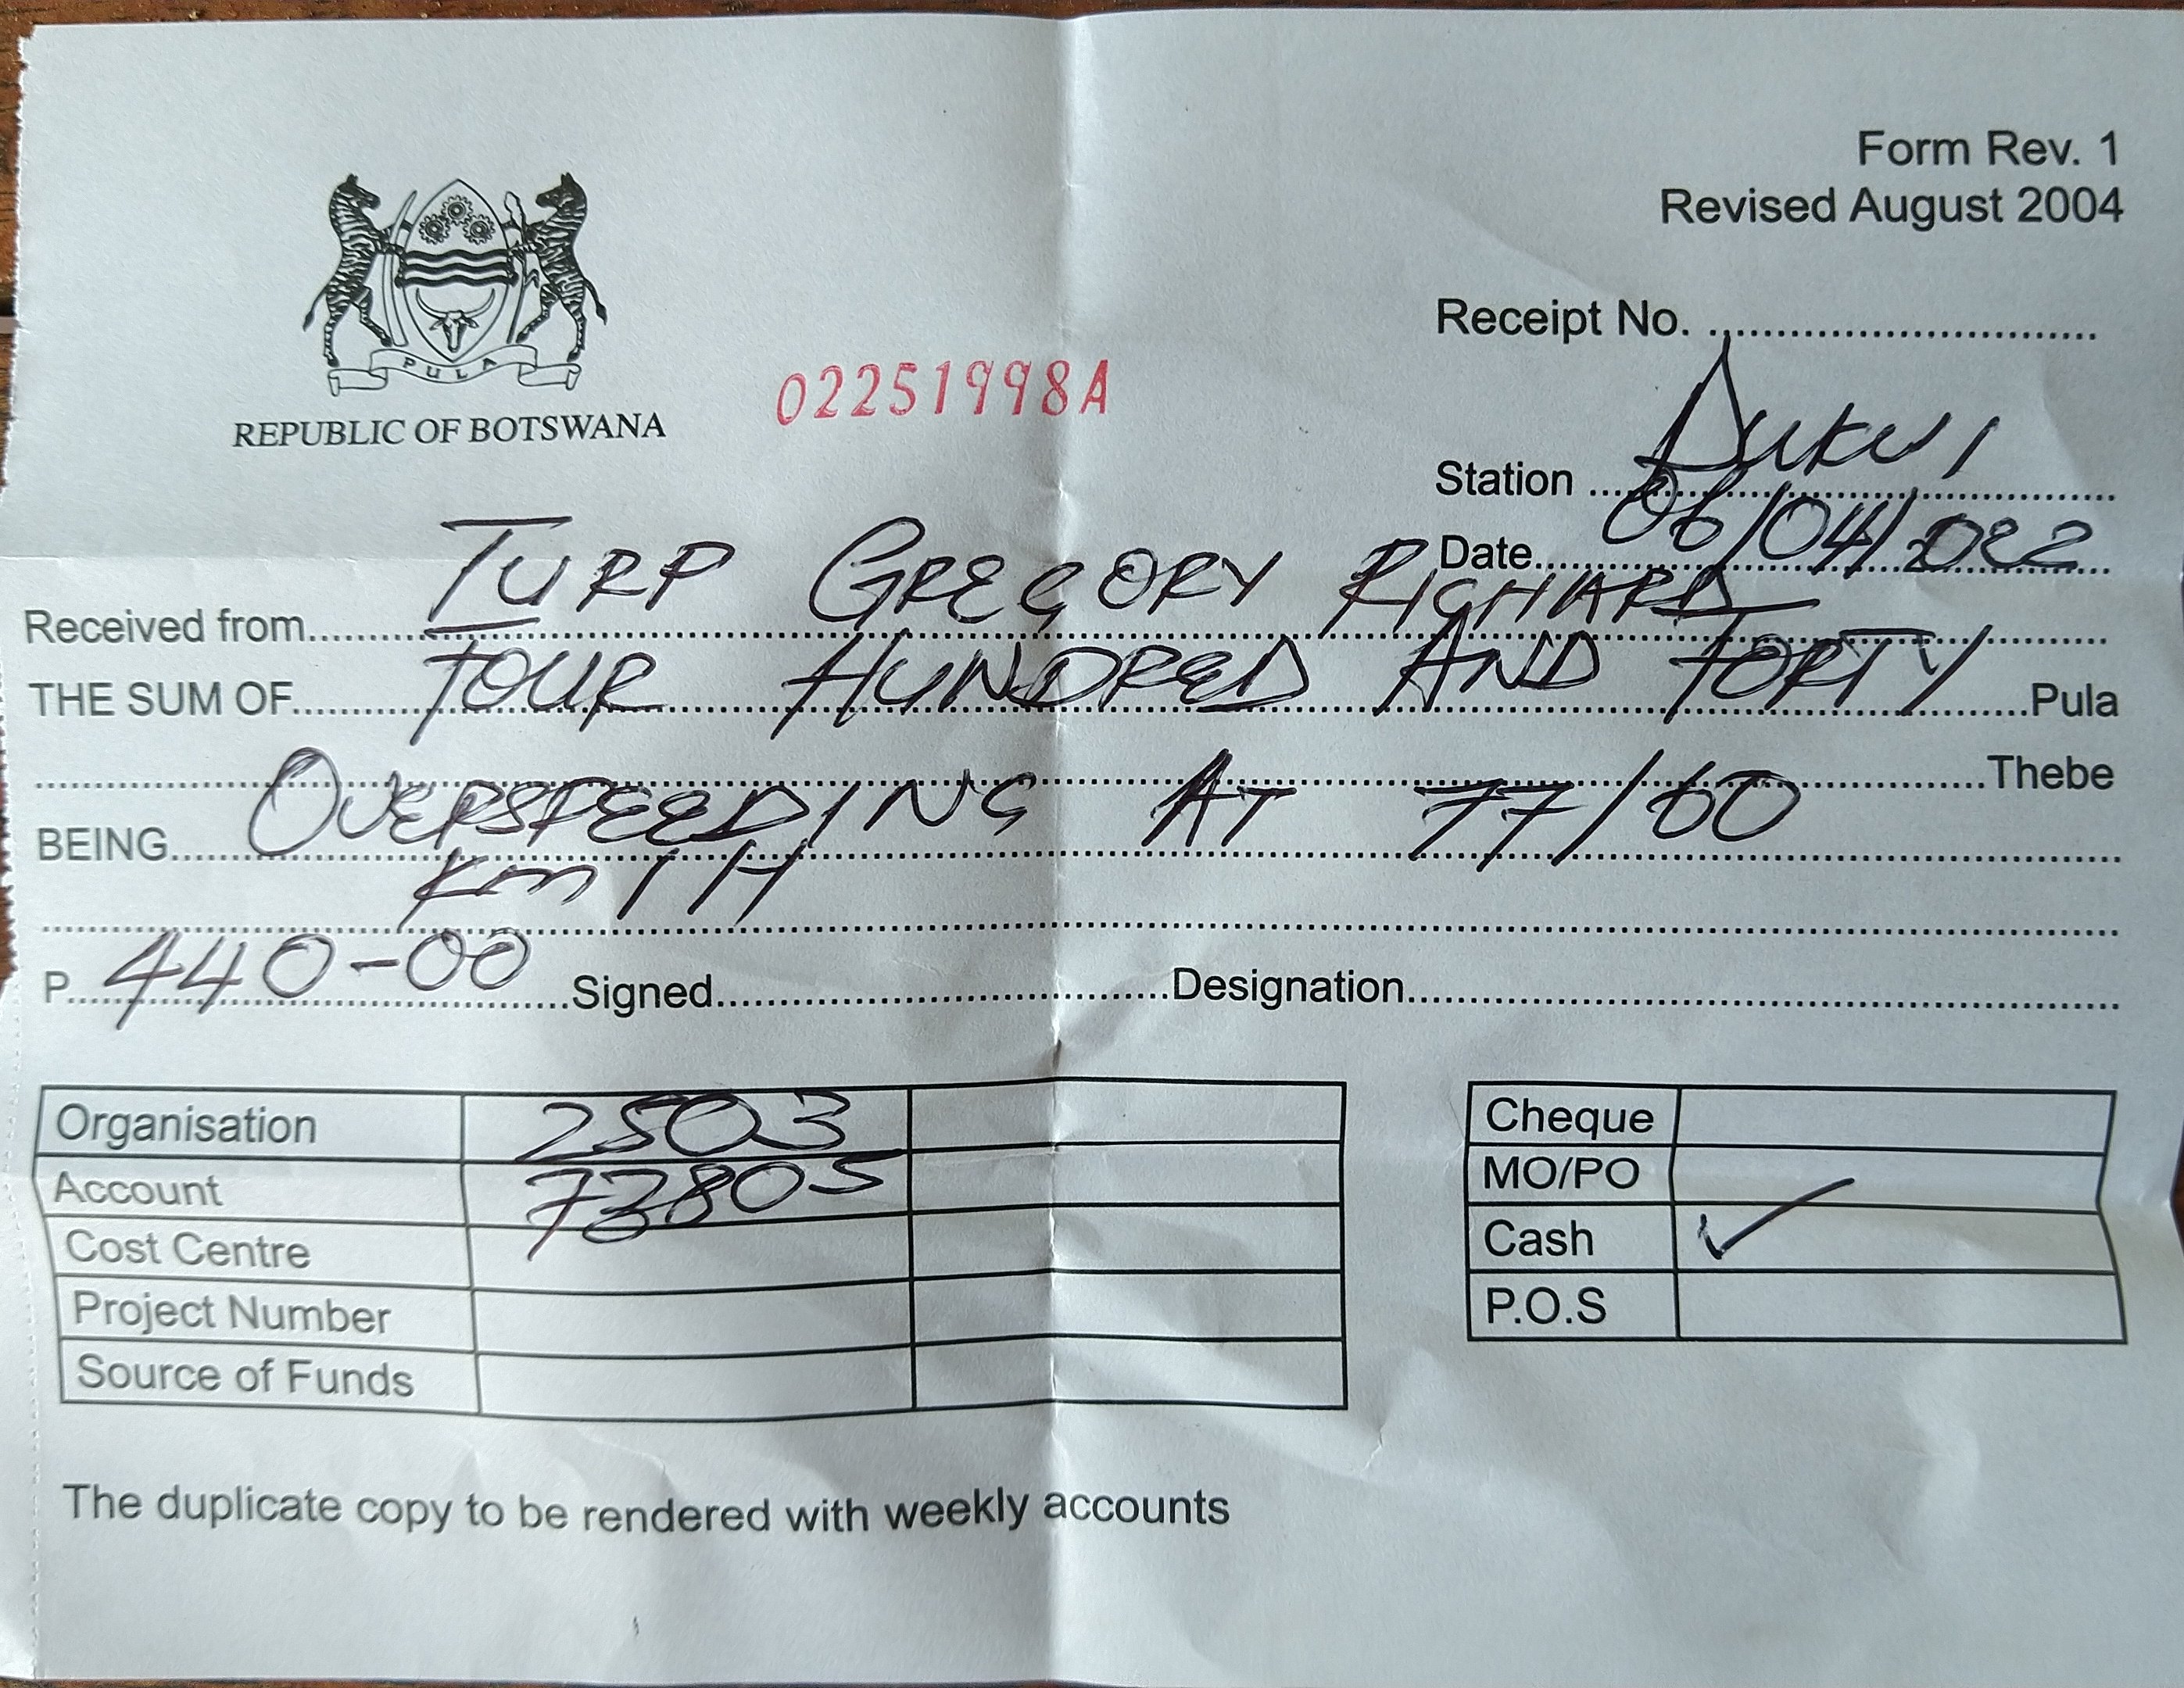 Form Rev. 1
Revised August 2004
PULA
REPUBLIC OF BOTSWANA
02251998A
Receipt No. ..............................
Station ..... DUKWI
Date..... 06/04/2022
Received from..... TURP GREGORY RICHARD
THE SUM OF..... FOUR HUNDRED AND FORTY .....Pula
.....Thebe
BEING..... OVERSPEEDING AT 77/60
Km/H
P..... 440-00 .....Signed..............................Designation..............................
Organisation 2503
Account 73805
Cost Centre
Project Number
Source of Funds
Cheque
MO/PO
Cash ✓
P.O.S
The duplicate copy to be rendered with weekly accounts